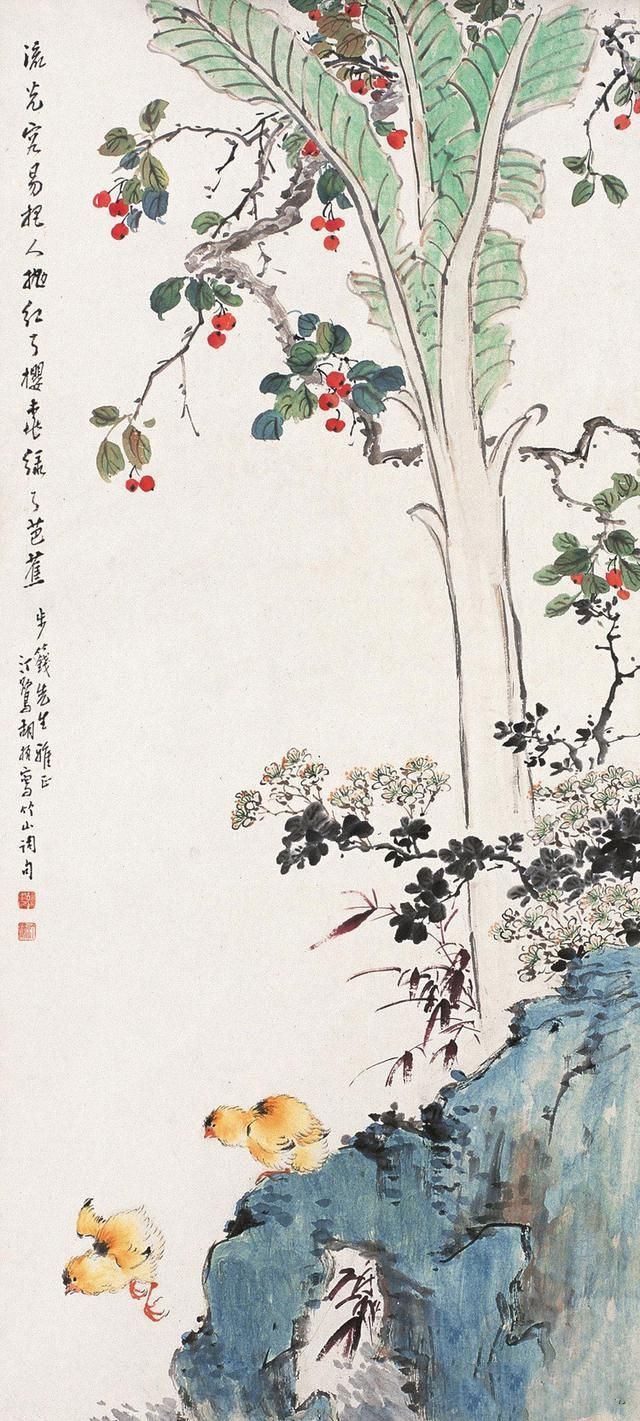 流光容易把人抛红了樱桃绿了芭蕉
步篯先生雅正
汀鹭胡振写竹山词句